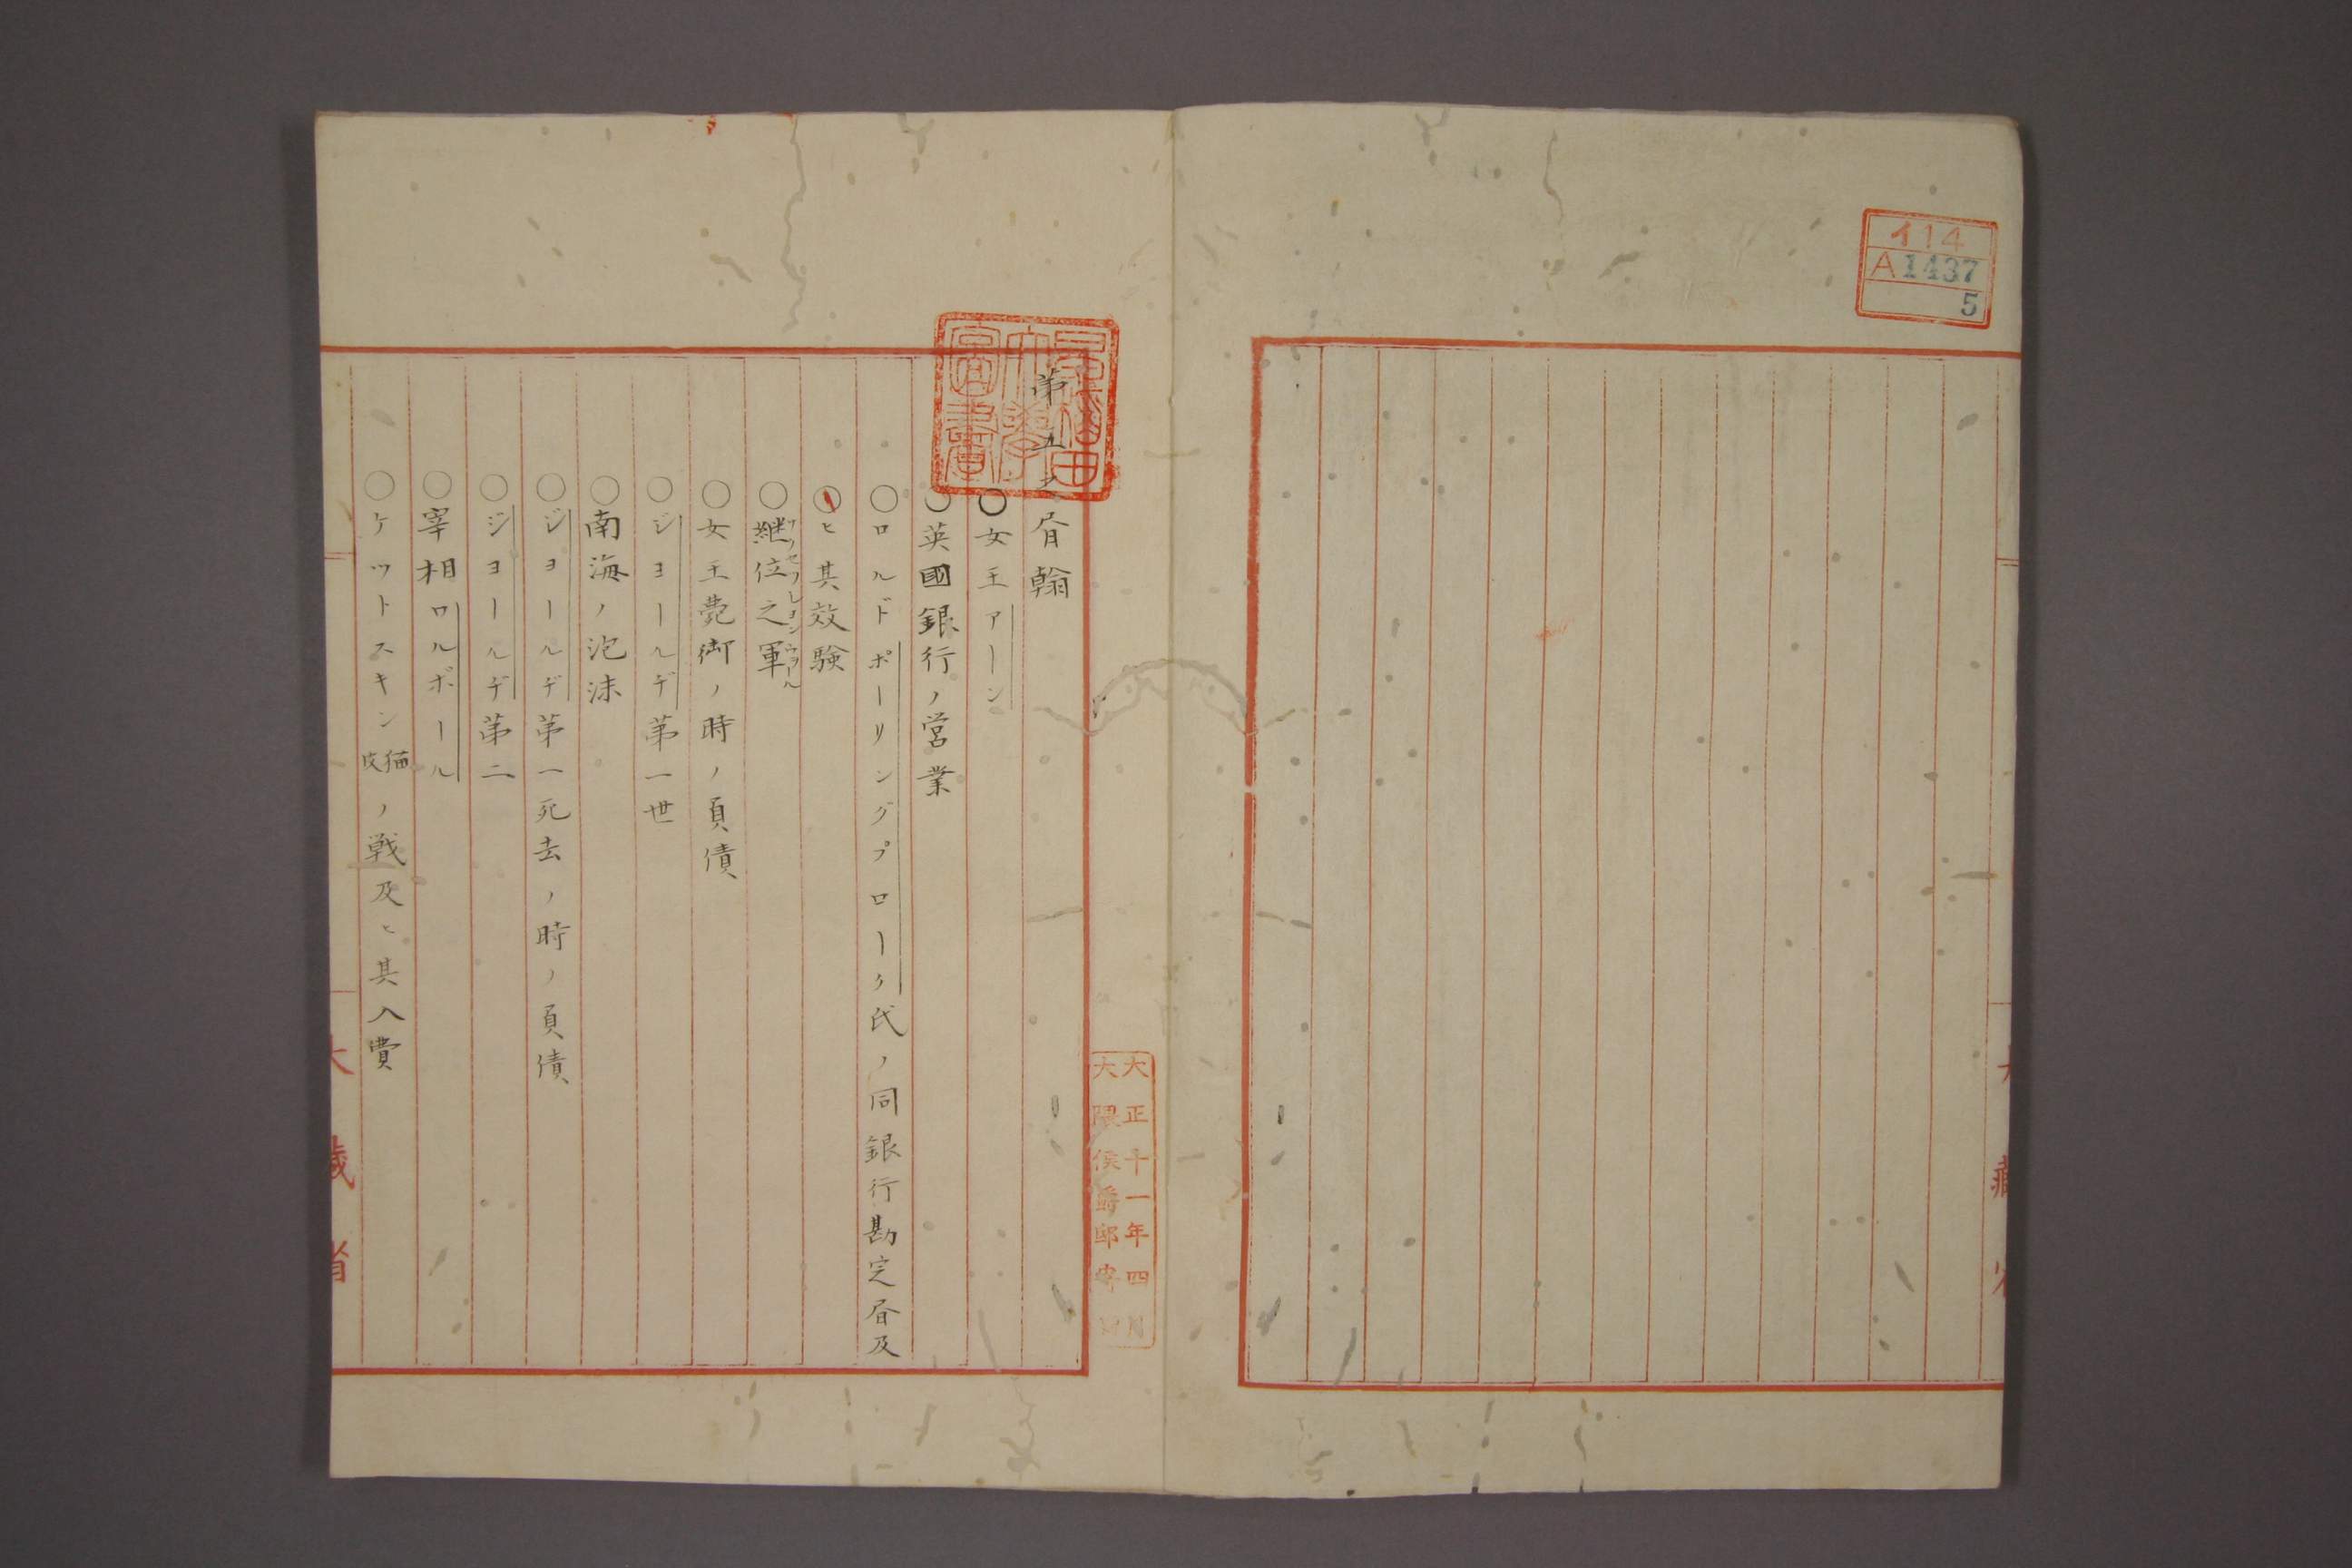 イ14
A1437
5
大正十一年四月
大隈侯爵邸寄贈
早稲田
大學
圖書
第五
書翰
○女王アーン
○英國銀行ノ営業
○ロルドボーリングブローク氏ノ同銀行勘定書及
ヒ其效驗
○継位之軍
サクセッションウヲール
○女王薨御ノ時ノ負債
○ジヨールヂ第一世
○南海ノ泡沫
○ジヨールヂ第一死去ノ時ノ負債
○ジヨールヂ第二
○宰相ロルポール
○ケットスキン猫皮ノ戦及ヒ其入費
大藏省